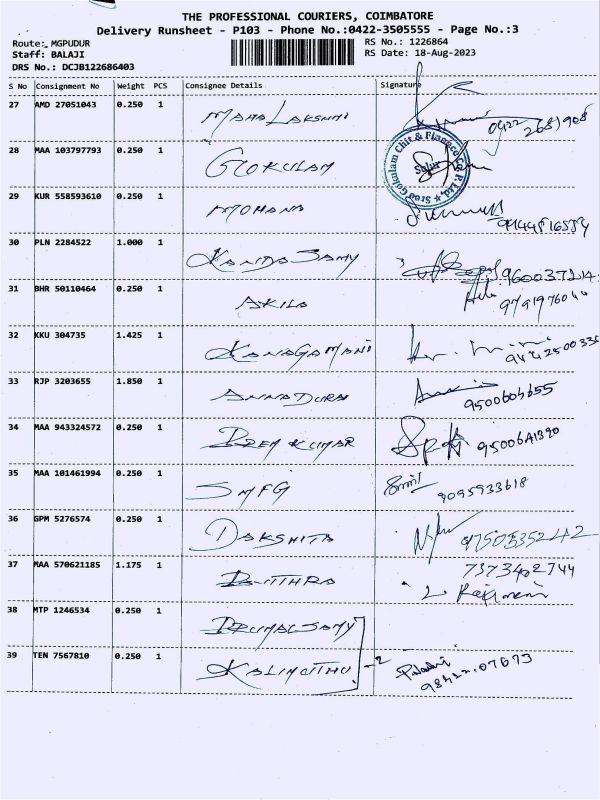 THE PROFESSIONAL COURIERS, COIMBATORE
Delivery Runsheet - P103 - Phone No.:0422-3505555 - Page No.:3
Route: MGPUDUR
RS No.: 1226864
Staff: BALAJI
RS Date: 18-Aug-2023
DRS No.: DCJB122686403
S No Consignment No Weight PCS Consignee Details Signature
27 AMD 27051043 0.250 1 MAHA LAKSHMI 0422 2681908
28 MAA 103797793 0.250 1 GOKULAM Sree Gokulam Chit & Finance Co. P. Ltd.,
29 KUR 558593610 0.250 1 MOHANA
30 PLN 2284522 1.000 1 KANDASAMY
31 BHR 50110464 0.250 1 AKILA
32 KKU 304735 1.425 1 KANAGAMANI
33 RJP 3203655 1.850 1 ANNADURAI
34 MAA 943324572 0.250 1 PREM KUMAR 9500641390
35 MAA 101461994 0.250 1 SMFG 9095933618
36 GPM 5276574 0.250 1 DAKSHITA
37 MAA 570621185 1.175 1 7373402744
38 MTP 1246534 0.250 1
39 TEN 7567810 0.250 1 KALIMUTHU -2